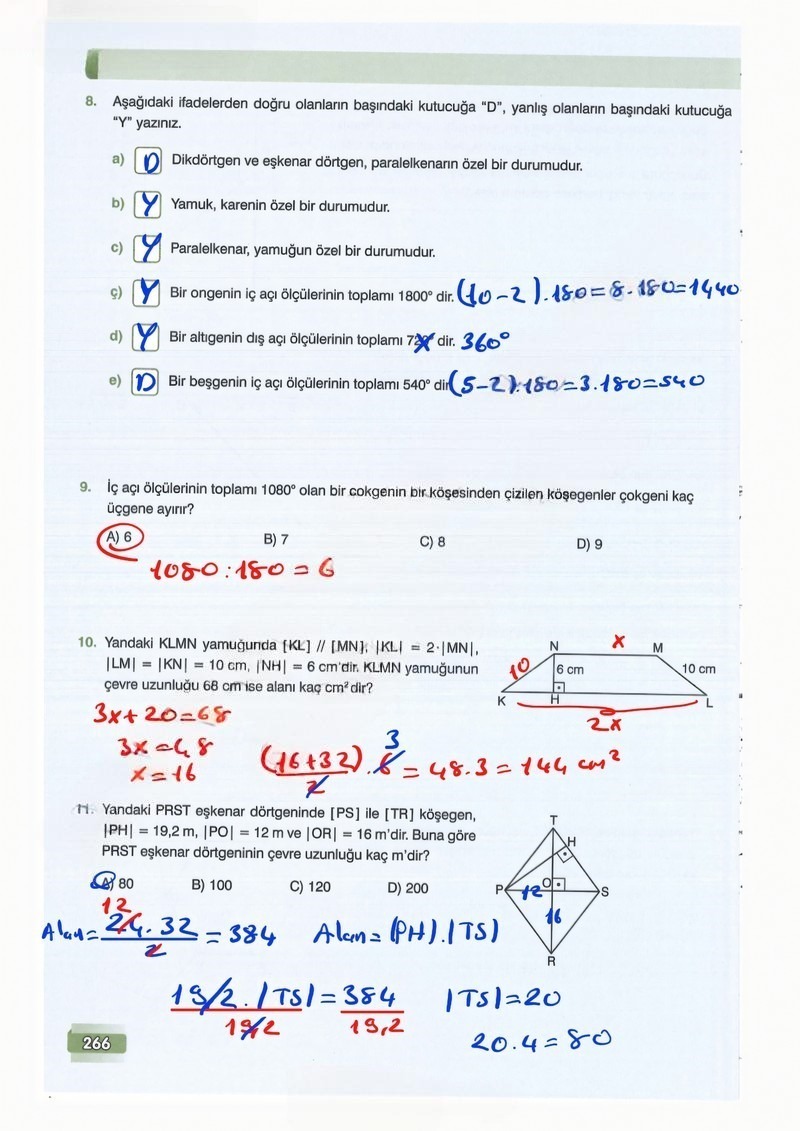 8. Aşağıdaki ifadelerden doğru olanların başındaki kutucuğa “D”, yanlış olanların başındaki kutucuğa
“Y” yazınız.
a) D Dikdörtgen ve eşkenar dörtgen, paralelkenarın özel bir durumudur.
b) Y Yamuk, karenin özel bir durumudur.
c) Y Paralelkenar, yamuğun özel bir durumudur.
ç) Y Bir ongenin iç açı ölçülerinin toplamı 1800° dir. (10-2).180=8.180=1440
d) Y Bir altıgenin dış açı ölçülerinin toplamı 720° dir. 360°
e) D Bir beşgenin iç açı ölçülerinin toplamı 540° dir (5-2).180=3.180=540
9. İç açı ölçülerinin toplamı 1080° olan bir çokgenin bir köşesinden çizilen köşegenler çokgeni kaç
üçgene ayırır?
A) 6 B) 7 C) 8 D) 9
1080:180=6
10. Yandaki KLMN yamuğunda [KL] // [MN], |KL| = 2·|MN|,
|LM| = |KN| = 10 cm, |NH| = 6 cm'dir. KLMN yamuğunun
çevre uzunluğu 68 cm ise alanı kaç cm² dir?
N x M
10 6 cm 10 cm
K H L
2x
3x+20=68
3x=48
x=16
3
(16+32).6/2 = 48.3=144 cm²
11. Yandaki PRST eşkenar dörtgeninde [PS] ile [TR] köşegen,
|PH| = 19,2 m, |PO| = 12 m ve |OR| = 16 m'dir. Buna göre
PRST eşkenar dörtgeninin çevre uzunluğu kaç m'dir?
A) 80 B) 100 C) 120 D) 200
T
H
P 12 O S
16
R
12
Alan=24.32/2=384 Alan=|PH|.|TS|
19,2.|TS|/19,2=384/19,2 |TS|=20
20.4=80
266